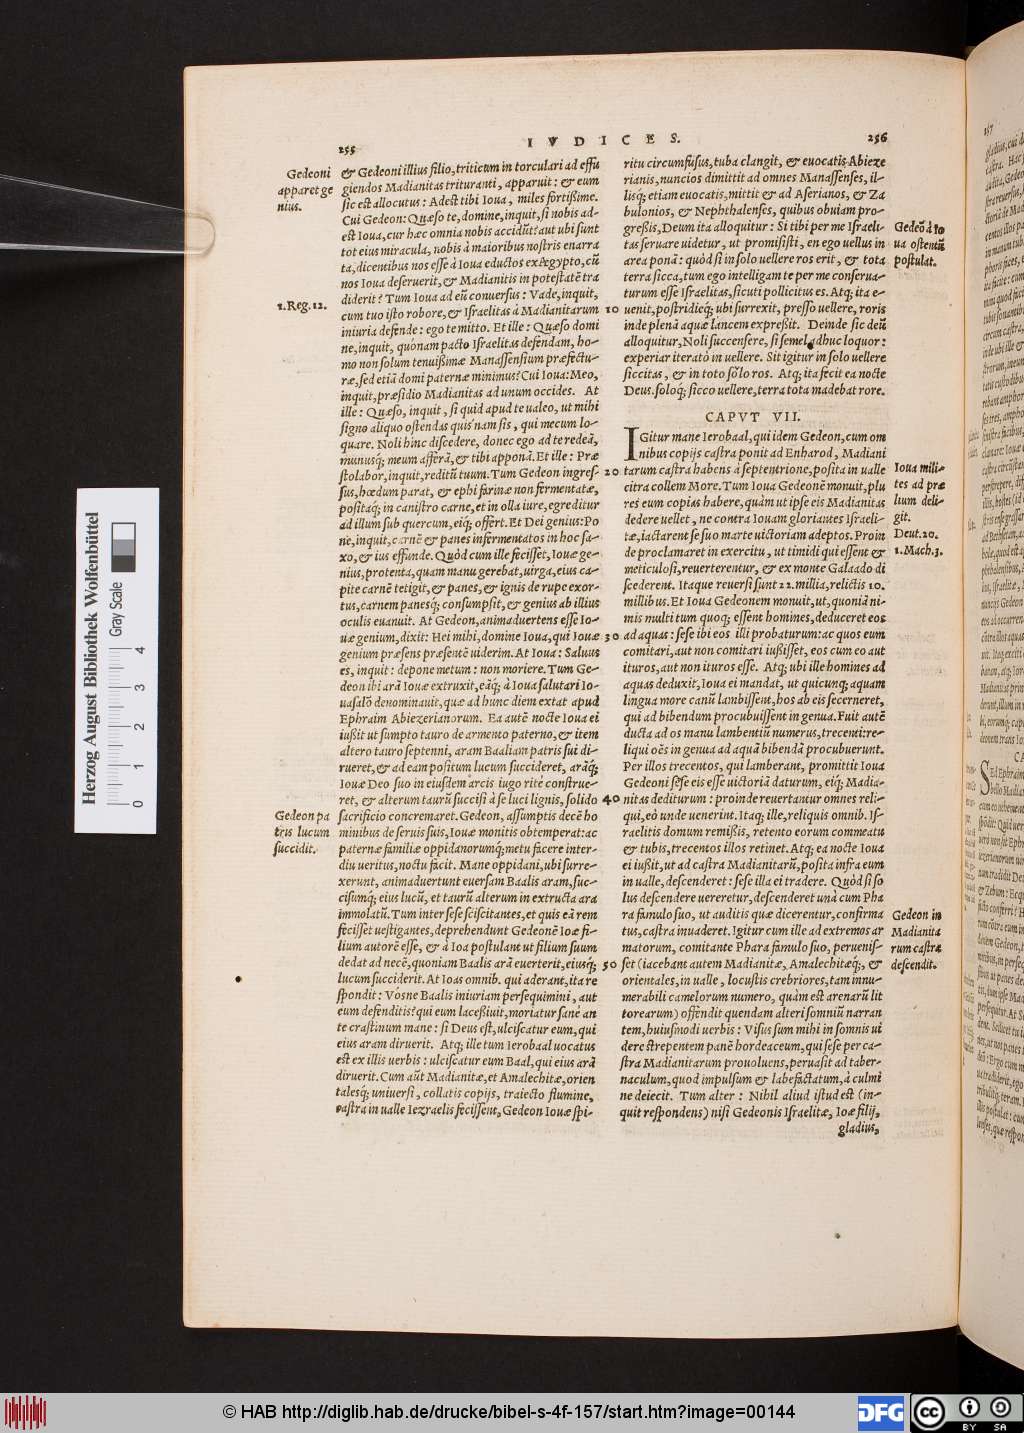 255
IVDICES.
256
Gedeoni
apparet ge
nius.
1. Reg. 12.
Gedeon pa
tris lucum
succidit.
& Gedeoni illius filio, triticum in torculari ad effu
giendos Madianitas trituranti, apparuit: & eum
sic est allocutus: Adest tibi Ioua, miles fortißime.
Cui Gedeon: Quæso te, domine, inquit, si nobis ad-
est Ioua, cur hæc omnia nobis accidũt? aut ubi sunt
tot eius miracula, nobis à maioribus nostris enarra
ta, dicentibus nos esse à Ioua eductos ex Aegypto, cũ
nos Ioua deseruerit, & Madianitis in potestatẽ tra
diderit? Tum Ioua ad eũ conuersus: Vade, inquit,
cum tuo isto robore, & Israelitas à Madianitarum
iniuria defende: ego te mitto. Et ille: Quæso domi
ne, inquit, quónam pacto Israelitas defendam, ho-
mo non solum tenuißimæ Manassensium præfectu-
ræ, sed etiã domi paternæ minimus? Cui Ioua: Meo,
inquit, præsidio Madianitas ad unum occides. At
ille: Quæso, inquit, si quid apud te ualeo, ut mihi
signo aliquo ostendas quis nam sis, qui mecum lo-
quare. Noli hinc discedere, donec ego ad te redeã,
munusq́; meum afferã, & tibi apponã. Et ille: Præ
stolabor, inquit, reditũ tuum. Tum Gedeon ingres-
sus, hœdum parat, & ephi farinæ non fermentatæ,
positaq́; in canistro carne, et in olla iure, egreditur
ad illum sub quercum, eiq́; offert. Et Dei genius: Po
ne, inquit, carnẽ & panes infermentatos in hoc sa-
xo, & ius effunde. Quòd cum ille fecisset, Iouæ ge-
nius, protenta, quam manu gerebat, uirga, eius ca-
pite carnẽ tetigit, & panes, & ignis de rupe exor-
tus, carnem panesq́; consumpsit, & genius ab illius
oculis euanuit. At Gedeon, animaduertens esse Io-
uæ genium, dixit: Hei mihi, domine Ioua, qui Iouæ
genium præsens præsentẽ uiderim. At Ioua: Saluus
es, inquit: depone metum: non moriere. Tum Ge-
deon ibi arã Iouæ extruxit, eãq́; à Ioua salutari Io-
uasalõ denominauit, quæ ad hunc diem extat apud
Ephraim Abiezerianorum. Ea autẽ nocte Ioua ei
iußit ut sumpto tauro de armento paterno, & item
altero tauro septenni, aram Baaliam patris sui di-
rueret, & ad eam positum lucum succideret, arãq́;
Iouæ Deo suo in eiusdem arcis iugo rite construe-
ret, & alterum taurũ succisi à se luci lignis, solido
sacrificio concremaret. Gedeon, assumptis decẽ ho
minibus de seruis suis, Iouæ monitis obtemperat: ac
paternæ familiæ oppidanorumq́; metu facere inter-
diu ueritus, noctu facit. Mane oppidani, ubi surre-
xerunt, animaduertunt euersam Baalis aram, suc-
cisumq́; eius lucũ, et taurũ alterum in extructa ara
immolatũ. Tum inter sese sciscitantes, et quis eã rem
fecisset uestigantes, deprehendunt Gedeonẽ Ioæ fi-
lium autorẽ esse, & à Ioa postulant ut filium suum
dedat ad necẽ, quoniam Baalis arã euerterit, eiusq́;
lucum succiderit. At Ioas omnib. qui aderant, ita re
spondit: Vósne Baalis iniuriam persequimini, aut
eum defenditis? qui eum laceßiuit, moriatur sanè an
te crastinum mane: si Deus est, ulciscatur eum, qui
eius aram diruerit. Atq́; ille tum Ierobaal uocatus
est ex illis uerbis: ulciscatur eum Baal, qui eius arã
diruerit. Cum aũt Madianitæ, et Amalechitæ, orien
talesq́; uniuersi, collatis copijs, traiecto flumine,
castra in ualle Iezraelis fecissent, Gedeon Iouæ spi-
10
20
30
40
50
ritu circumfusus, tuba clangit, & euocatis Abieze
rianis, nuncios dimittit ad omnes Manassenses, il-
lisq́; etiam euocatis, mittit & ad Aserianos, & Za
bulonios, & Nephthalenses, quibus obuiam pro-
greßis, Deum ita alloquitur: Si tibi per me Israeli-
tas seruare uidetur, ut promisisti, en ego uellus in
area ponã: quòd si in solo uellere ros erit, & tota
terra sicca, tum ego intelligam te per me conserua-
turum esse Israelitas, sicuti pollicitus es. Atq́; ita e-
uenit, postridieq́; ubi surrexit, presso uellere, roris
inde plenã aquæ lancem expreßit. Deinde sic deũ
alloquitur, Noli succensere, si semel adhuc loquor:
experiar iteratò in uellere. Sit igitur in solo uellere
siccitas, & in toto solo ros. Atq́; ita fecit ea nocte
Deus. soloq́; sicco uellere, terra tota madebat rore.
CAPVT VII.
IGitur mane Ierobaal, qui idem Gedeon, cum om
nibus copijs castra ponit ad Enharod, Madiani
tarum castra habens à septentrione, posita in ualle
citra collem More. Tum Ioua Gedeonẽ monuit, plu
res eum copias habere, quàm ut ipse eis Madianitas
dedere uellet, ne contra Iouam gloriantes Israeli-
tæ, iactarent se suo marte uictoriam adeptos. Proin
de proclamaret in exercitu, ut timidi qui essent &
meticulosi, reuerterentur, & ex monte Galaado di
scederent. Itaque reuersi sunt 22. millia, relictis 10.
millibus. Et Ioua Gedeonem monuit, ut, quoniã ni-
mis multi tum quoq; essent homines, deduceret eos
ad aquas: sese ibi eos illi probaturum: ac quos eum
comitari, aut non comitari iußisset, eos cum eo aut
ituros, aut non ituros esse. Atq; ubi ille homines ad
aquas deduxit, Ioua ei mandat, ut quicunq; aquam
lingua more canũ lambissent, hos ab eis secerneret,
qui ad bibendum procubuissent in genua. Fuit autẽ
ducta ad os manu lambentiũ numerus, trecenti: re-
liqui oẽs in genua ad aquã bibendã procubuerunt.
Per illos trecentos, qui lamberant, promittit Ioua
Gedeoni sese eis esse uictoriã daturum, eiq́; Madia-
nitas dediturum: proinde reuertantur omnes reli-
qui, eò unde uenerint. Itaq; ille, reliquis omnib. Is-
raelitis domum remißis, retento eorum commeatu
& tubis, trecentos illos retinet. Atq; ea nocte Ioua
ei iußit, ut ad castra Madianitarũ, posita infra eum
in ualle, descenderet: sese illa ei tradere. Quòd si so
lus descendere uereretur, descenderet unà cum Pha
ra famulo suo, ut auditis quæ dicerentur, confirma
tus, castra inuaderet. Igitur cum ille ad extremos ar
matorum, comitante Phara famulo suo, peruenis-
set (iacebant autem Madianitæ, Amalechitæq́;, &
orientales, in ualle, locustis crebriores, tam innu-
merabili camelorum numero, quàm est arenarũ lit
torearum) offendit quendam alteri somniũ narran
tem, huiusmodi uerbis: Visus sum mihi in somnis ui
dere strepentem panẽ hordeaceum, qui sese per ca-
stra Madianitarum prouoluens, peruasit ad taber-
naculum, quod impulsum & labefactatum, à culmi
ne deiecit. Tum alter: Nihil aliud istud est (in-
quit respondens) nisi Gedeonis Israelitæ, Ioæ filij,
gladius,
Gedeõ à Io
ua ostentũ
postulat.
Ioua mili-
tes ad præ
lium deli-
git.
Deut. 20.
1. Mach. 3.
Gedeon in
Madianita
rum castra
descendit.
Herzog August Bibliothek Wolfenbüttel
Gray Scale
0 1 2 3 4
© HAB http://diglib.hab.de/drucke/bibel-s-4f-157/start.htm?image=00144
DFG
cc BY SA